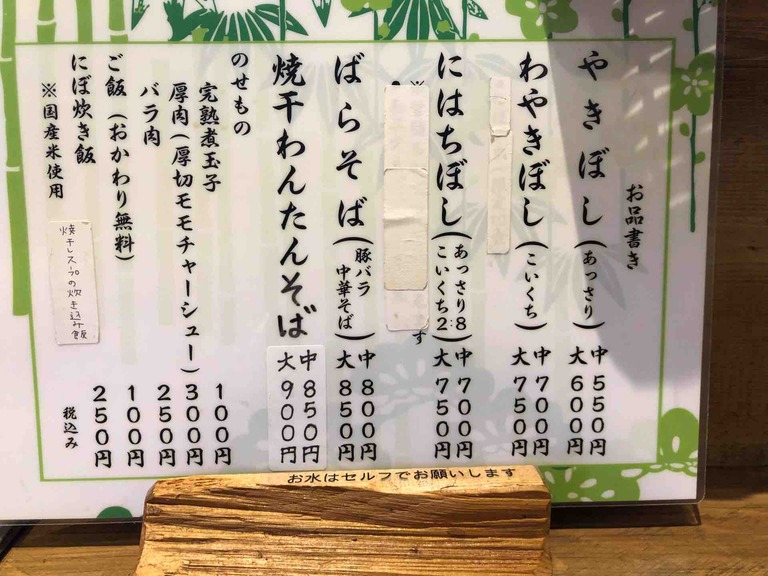 お品書き
やきぼし(あっさり)中550円
大600円
わやきぼし(こいくち)中700円
大750円
※
にはちぼし(あっさり8:こいくち2)中700円
大750円
※
す
ばらそば(豚バラ中華そば)中800円
大850円
焼干わんたんそば 中850円
大900円
のせもの
完熟煮玉子 100円
厚肉(厚切モモチャーシュー)300円
バラ肉 250円
ご飯(おかわり無料)100円
にぼ炊き飯 250円
※国産米使用
焼干しスープの炊き込み飯
税込み
お水はセルフでお願いします